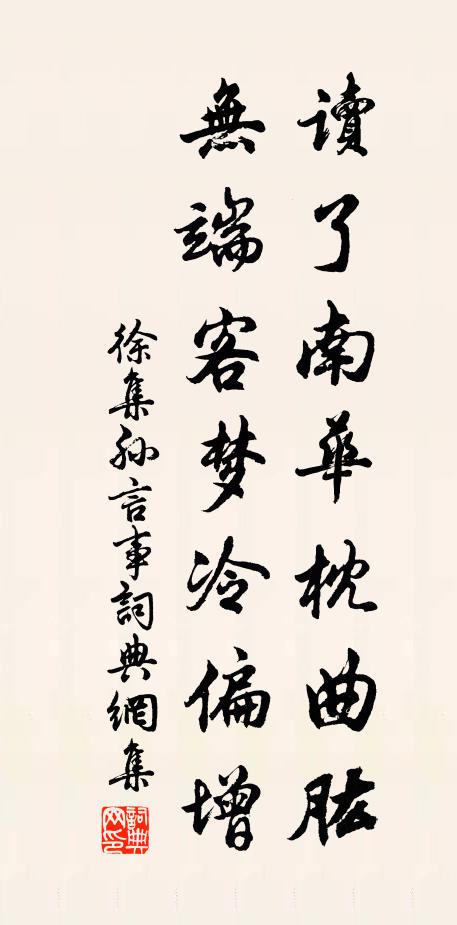 讀了南華枕曲肱
無端客梦冷偏增
徐集孙言事詞典網集
詞典网印